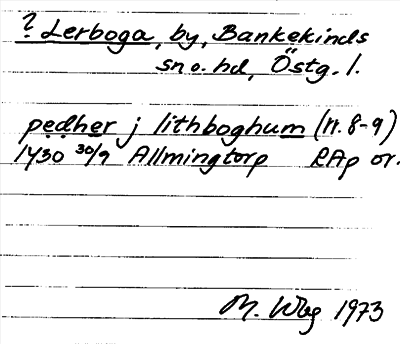 ? Lerboga, by, Bankekinds
sn o. hd, Östg. l.
pedher j lithboghum (r. 8-9)
1430 30/9 Allmingtorp RAp or.
M. Wbg 1973